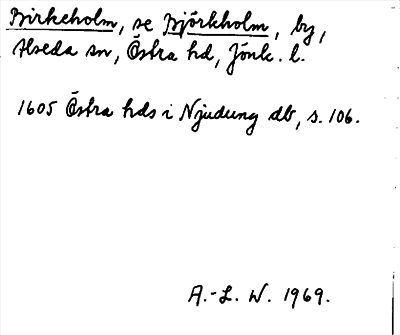 Birkeholm, se Björkholm, by,
Alseda sn, Östra hd, Jönk. l.
1605 Östra hds i Njudung db, s. 106.
A.-L. W. 1969.